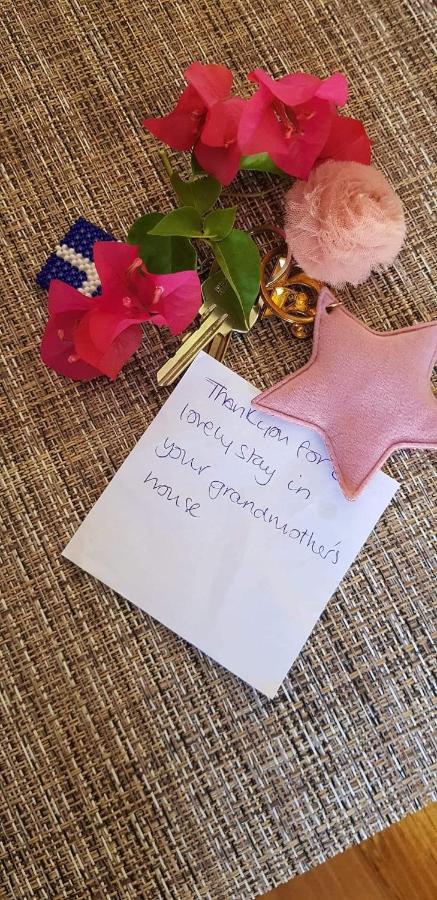 Thankyou for a
lovely stay in
your grandmother's
house